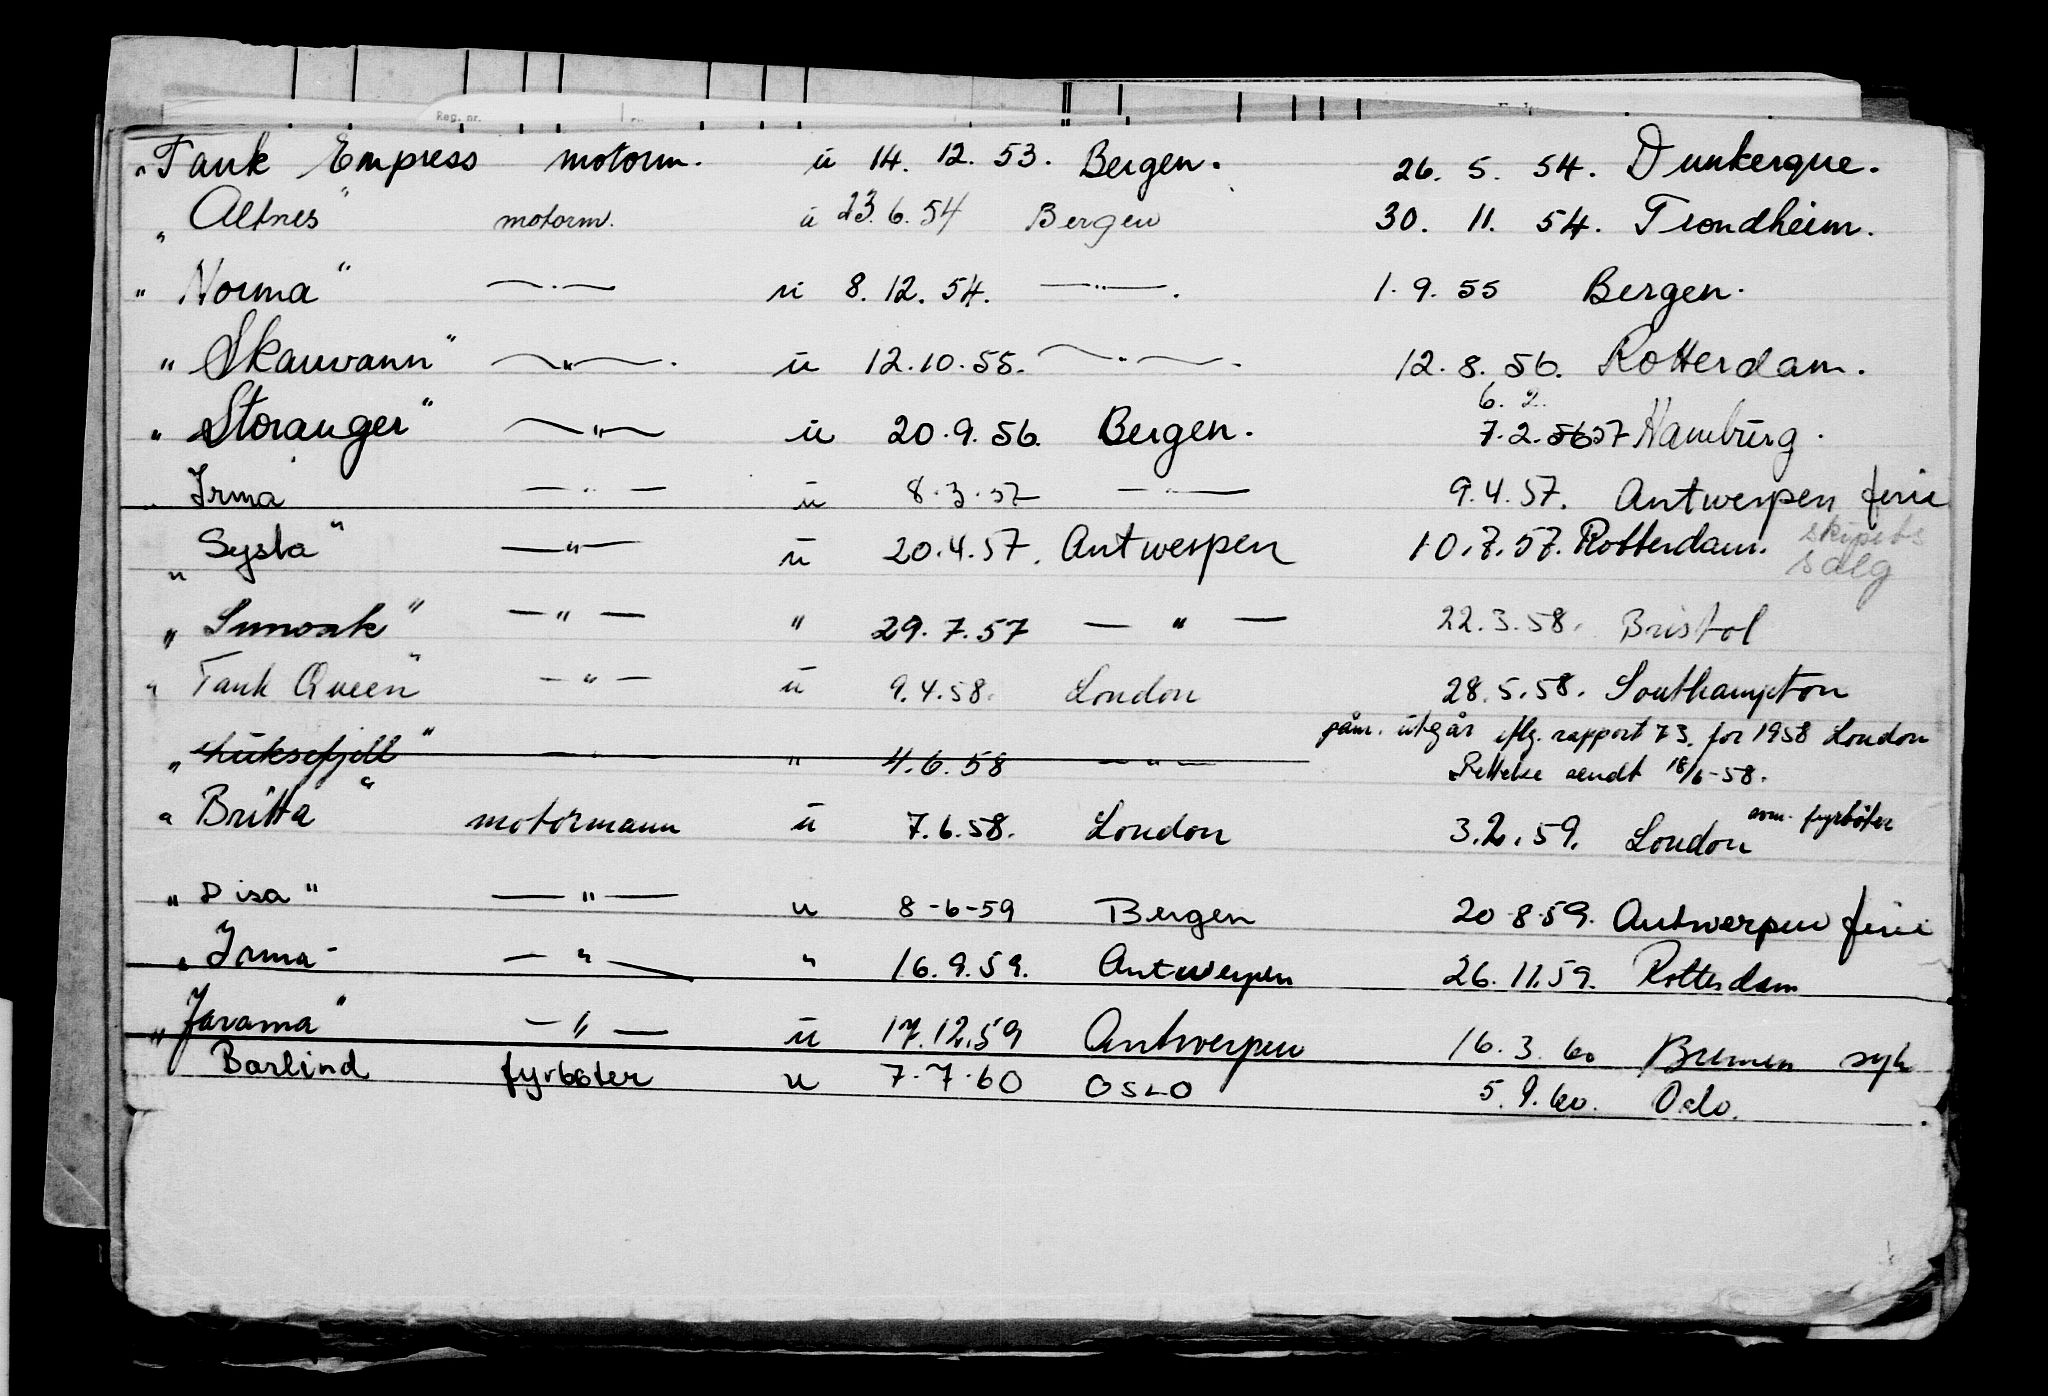 Reg. nr.
„Tank Empress motorm. u 14. 12. 53. Bergen. 26. 5. 54. Dunkerque.
„ Altnes" motorm. u 23.6.54 Bergen 30. 11. 54. Trondheim.
" Norma" —·— u 8. 12. 54. —"—. 1.9.55 Bergen.
" Skauvann" —"—. u 12.10.55. —"—. 12.8.56. Rotterdam.
6. 2.
" Storanger" —"— u 20.9.56. Bergen. 7.2.56 57 Hamburg.
„ Irma —"— u 8.3.57 —"— 9.4.57. Antwerpen ferie
„ Sysla" —"— u 20.4.57. Antwerpen 10.7.57. Rotterdam. skipets
salg
„ Sunoak" —"— " 29.7.57 —"— 22.3.58. Bristol
" Tank Queen" —"— u 9.4.58. London 28.5.58. Southampton
påm. utgår iflg. rapport 73. for 1958 London
„ " —"— " 4.6.58 —"— Rettelse sendt 18/6-58.
" Britta " motormann u 7.6.58. London 3.2.59. London som fyrbøter
„ Disa" —"— u 8-6-59 Bergen 20.8.59. Antwerpen ferie
„ Irma- —"— " 16.9.59. Antwerpen 26.11.59. Rotterdam
" Jarama" —"— u 17.12.59 Antwerpen 16.3.60 Bremen syk
Barlind fyrbøter u 7.7.60 OSLO 5.9.60. Oslo.